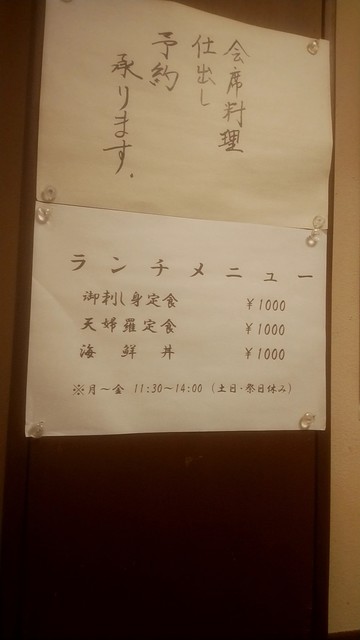 会席料理
仕出し
予約
承ります.
ランチメニュー
御刺し身定食 ¥1000
天婦羅定食 ¥1000
海鮮丼 ¥1000
※月～金 11:30～14:00 (土日・祭日休み)